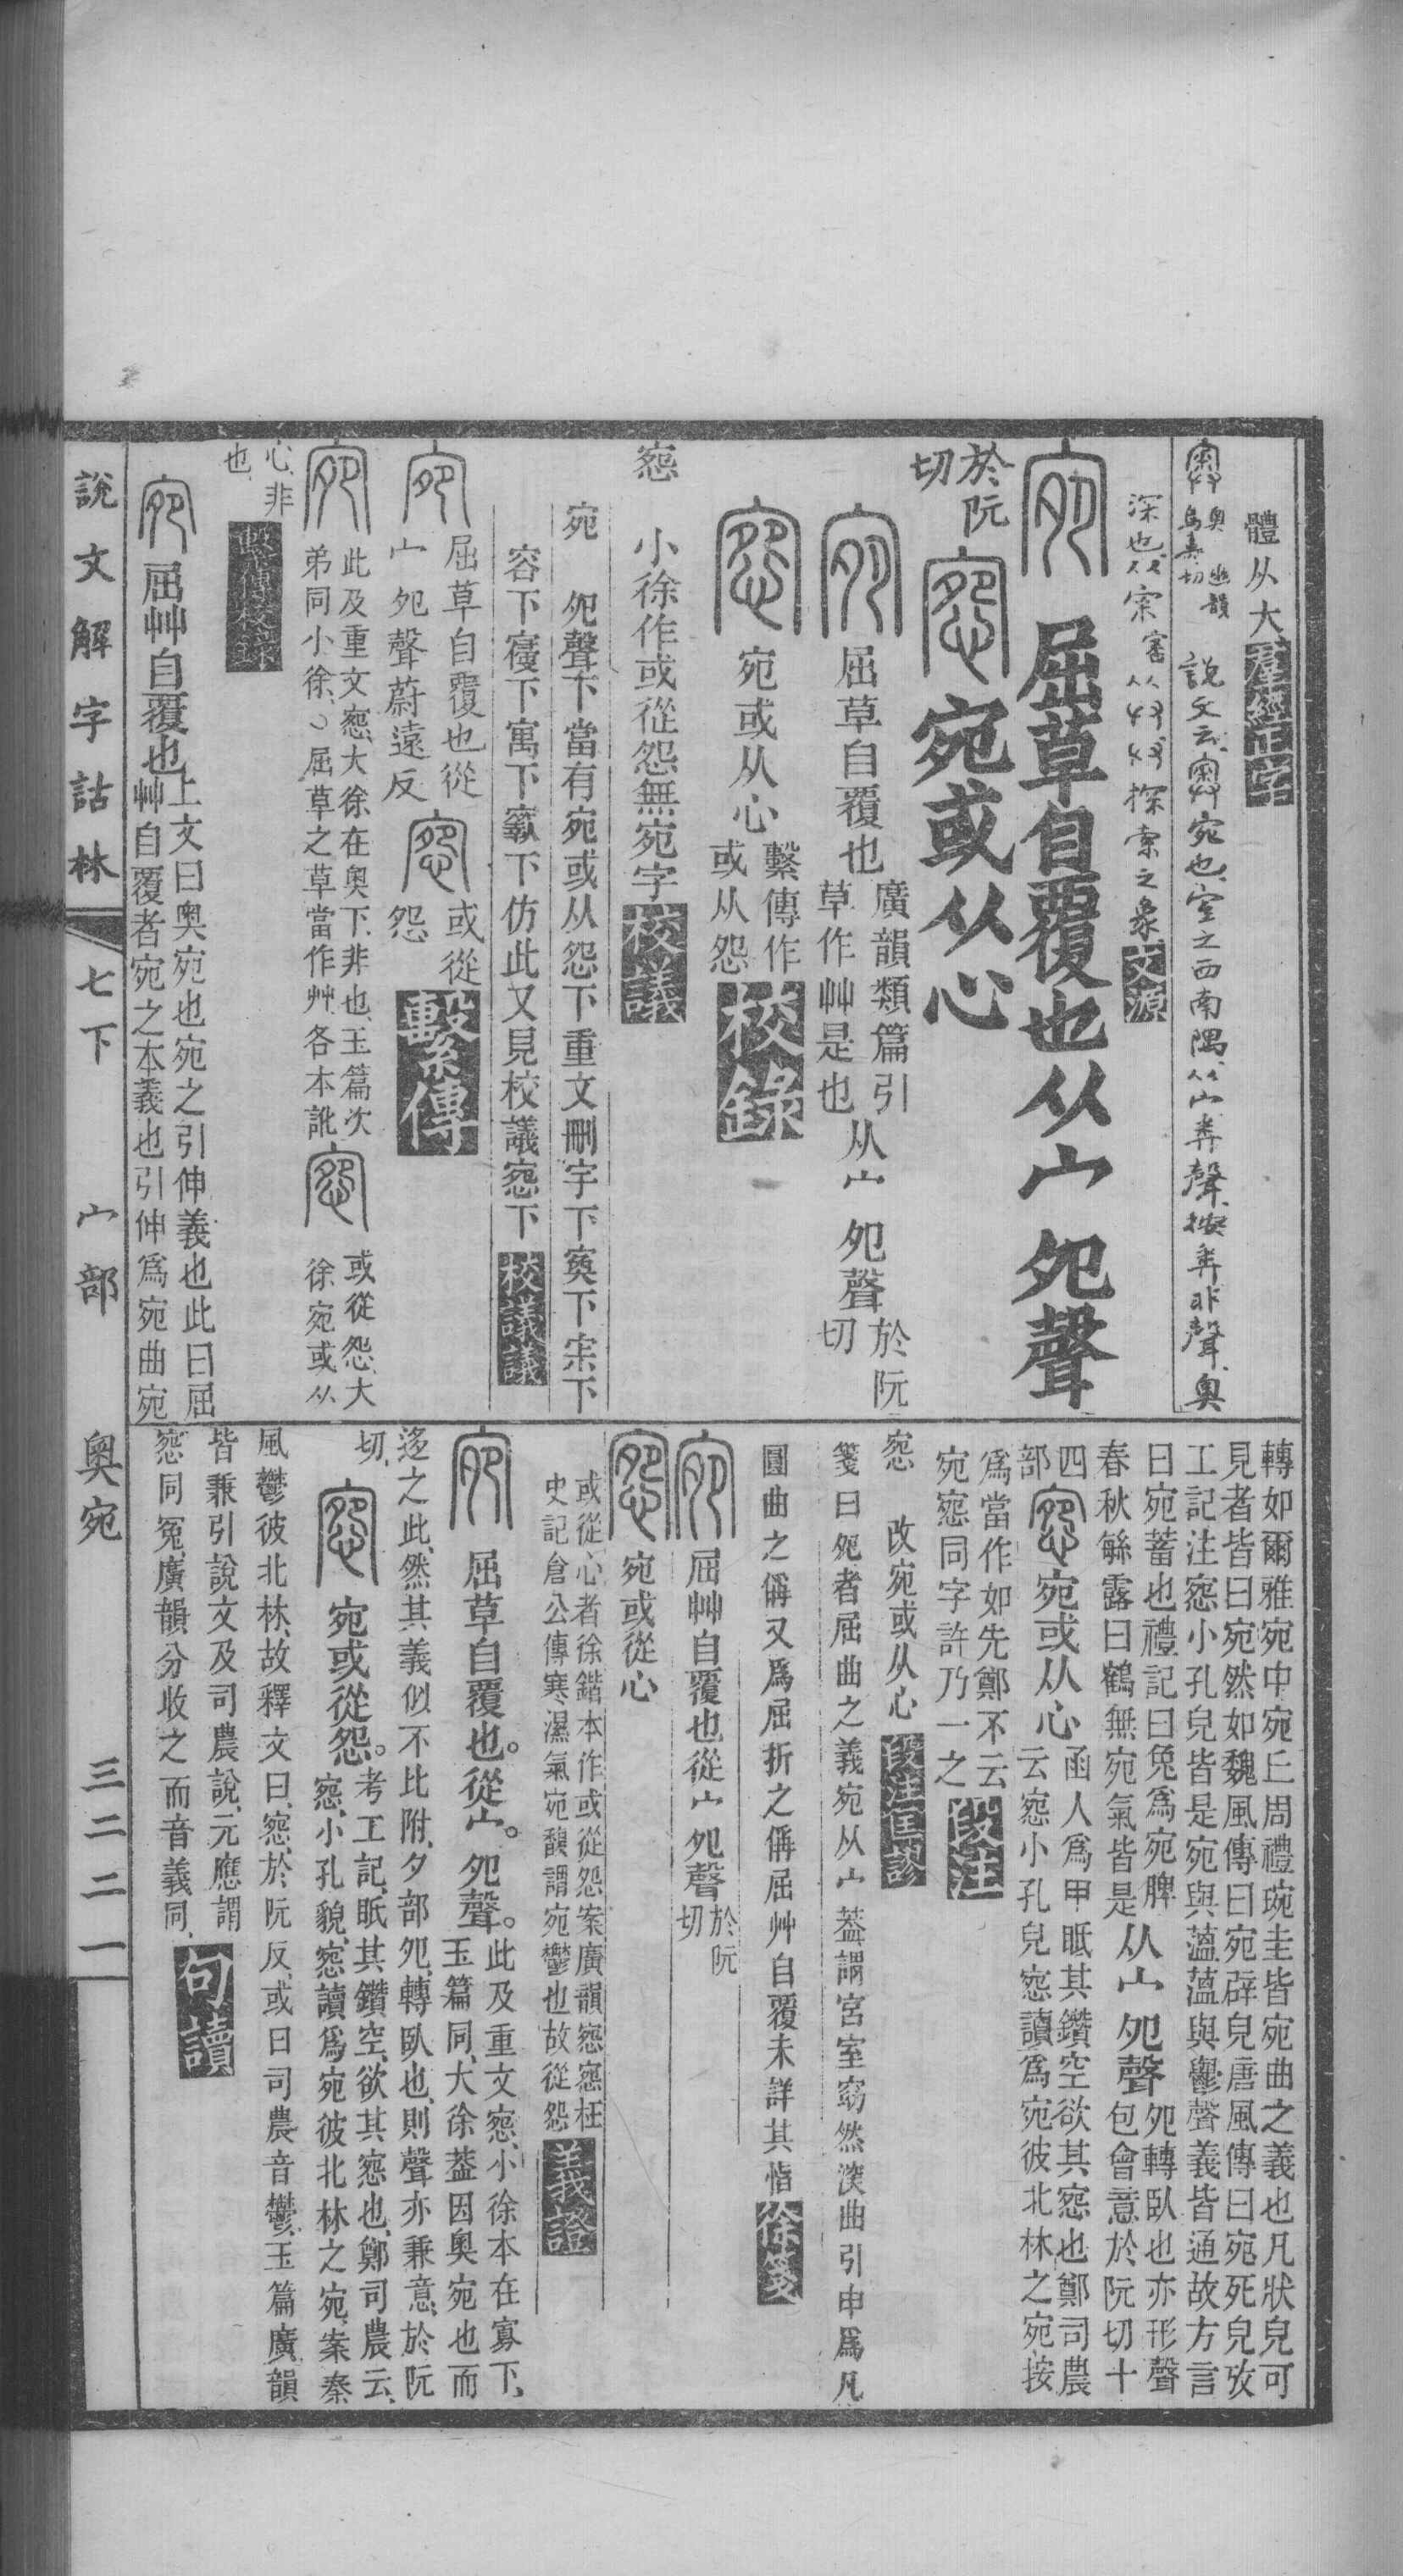 體从大羣經正字
奧 幽韻 烏奏切 說文云宛也室之西南隅从宀𢍏聲按𢍏非聲奧
深也从宷審从廾廾探索之象文源
屈草自覆也从宀夗聲
於阮切 宛或从心
屈草自覆也廣韻類篇引草作艸是也从宀夗聲於阮切
宛或从心繫傳作或从怨校錄
惌 小徐作或從怨無宛字校議
宛 夗聲下當有宛或从怨下重文刪宇下寏下宲下
容下寑下寓下窾下仿此又見校議惌下校議議
屈草自覆也從宀夗聲蔚遠反 或從怨繫傳
此及重文惌大徐在奧下非也玉篇次弟同小徐屈草之草當作艸各本訛 或從怨大徐宛或从
心非也繫傳校錄
屈艸自覆也上文曰奧宛也宛之引伸義也此曰屈艸自覆者宛之本義也引伸爲宛曲宛
轉如爾雅宛中宛丘周禮琬圭皆宛曲之義也凡狀皃可
見者皆曰宛然如魏風傳曰宛辟皃唐風傳曰宛死皃攷
工記注惌小孔皃皆是宛與薀薀與鬱聲義皆通故方言
曰宛蓄也禮記曰兔爲宛脾
春秋緐露曰鶴無宛氣皆是从宀夗聲夗轉臥也亦形聲包會意於阮切十
四部 宛或从心函人爲甲眡其鑽空欲其惌也鄭司農云惌小孔皃惌讀爲宛彼北林之宛按
爲當作如先鄭不云宛惌同字許乃一之段注
惌 改宛或从心段注匡謬
箋曰夗者屈曲之義宛从宀葢謂宮室窈然深曲引申爲凡
圓曲之偁又爲屈折之偁屈艸自覆未詳其恉徐箋
屈艸自覆也從宀夗聲於阮切
宛或從心
或從心者徐鍇本作或從怨案廣韻惌惌枉
史記倉公傳寒濕氣宛馥謂宛鬱也故從怨義證
屈草自覆也。從宀。夗聲。此及重文惌、小徐本在寡下、玉篇同、大徐葢因奧宛也而
迻之此、然其義似不比附、夕部夗、轉臥也、則聲亦兼意、於阮
切、 宛或從怨。考工記、眡其鑽空、欲其惌也、鄭司農云、惌、小孔貌、惌讀爲宛彼北林之宛、案秦
風鬱彼北林、故釋文曰、惌、於阮反、或曰司農音鬱、玉篇廣韻
皆兼引說文及司農說、元應謂
惌同冤、廣韻分收之、而音義同、句讀
說文解字詁林 七下 宀部 奧宛 三二二一